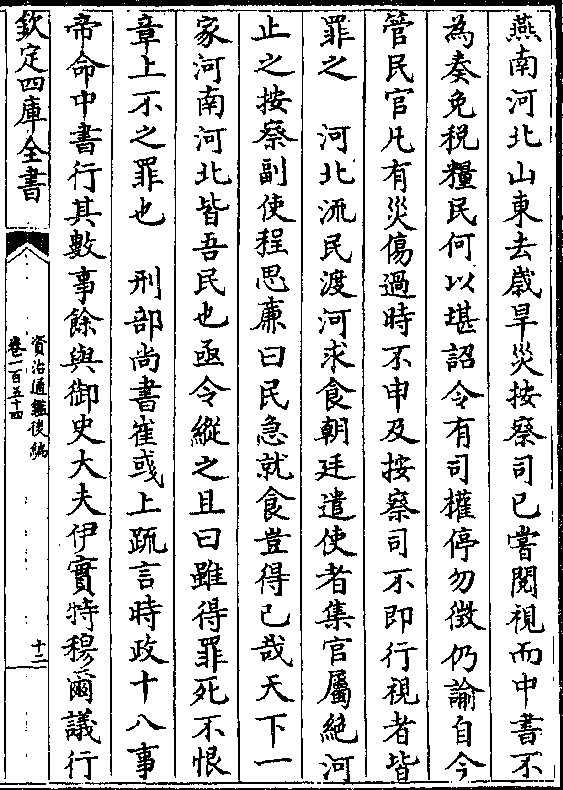 燕南河北山東去歲旱災按察司已嘗閱視而中書不
為奏免稅糧民何以堪詔令有司權停勿徵仍諭自今
管民官凡有災傷過時不申及按察司不即行視者皆
罪之　河北流民渡河求食朝廷遣使者集官屬絶河
止之按察副使程思廉曰民急就食豈得已哉天下一
家河南河北皆吾民也亟令縱之且曰雖得罪死不恨
章上不之罪也　刑部尚書崔彧上疏言時政十八事
帝命中書行其數事餘與御史大夫伊實特穆爾議行
欽定四庫全書
資治通鑑後編
卷一百五十四
十二